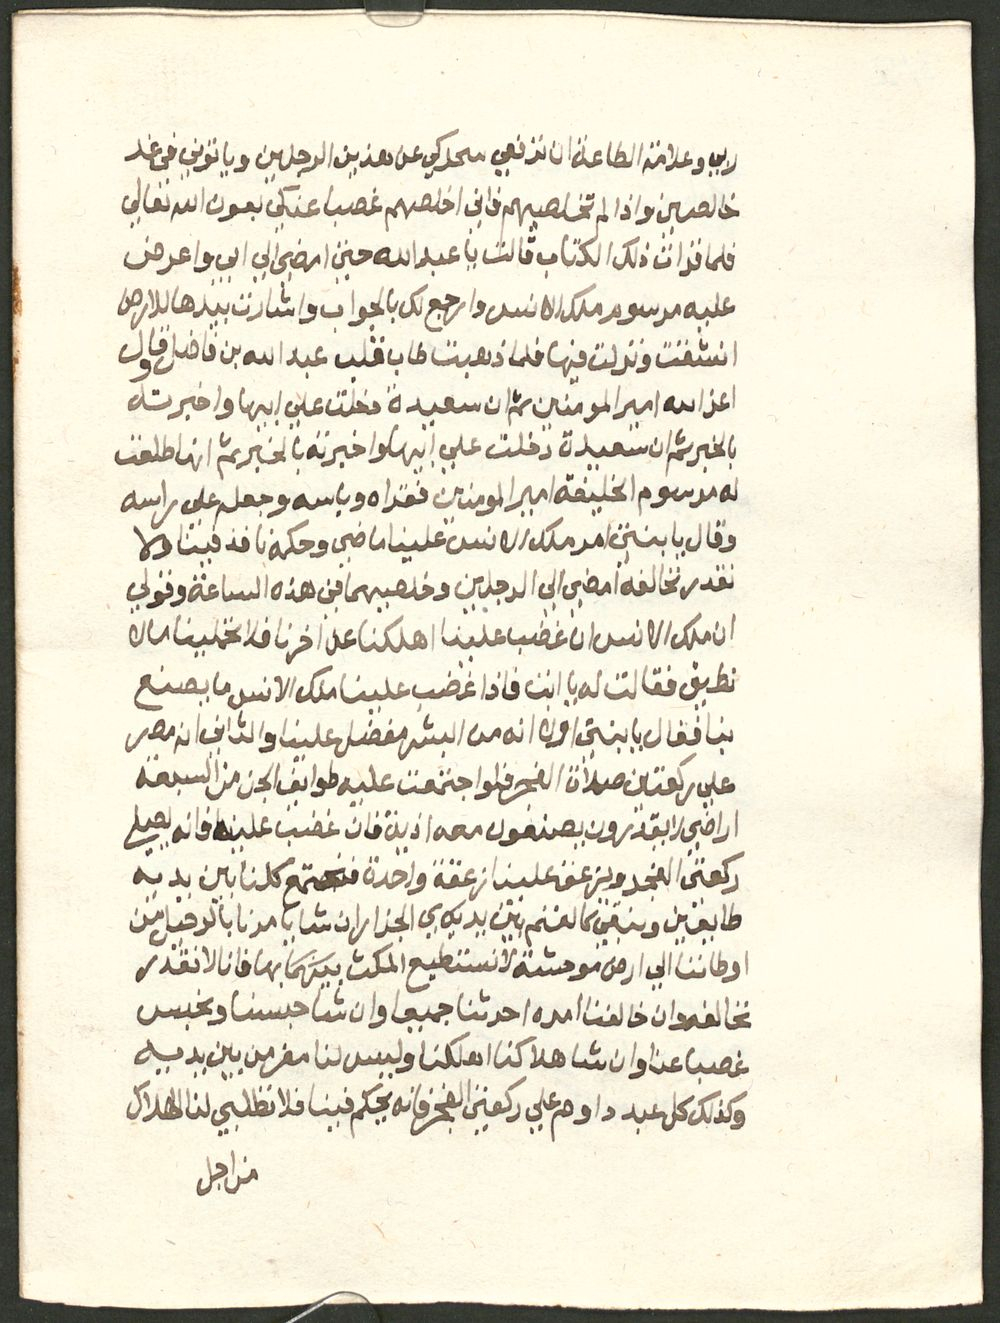 ربي وعلامة الطاعة ان ترفعي سحركي عن هذين الرجلين وياتوني في غد
خالصين واذا لم تخلصيهم فاني اخلصهم غصبا عنكي بعون الله تعالي
فلما قرات ذلك الكتاب قالت يا عبد الله حتي امضي الي ابي واعرض
عليه مرسوم ملك الانس وارجع لك بالجواب واشارت بيدها للارض
انشقت ونزلت فيها فلما ذهبت طاب قلب عبد الله بن فاضل وقال
اعز الله امير المومنين ثم ان سعيدة دخلت علي ابيها واخبرته
بالخبر ثم ان سعيدة دخلت علي ابيها واخبرته بالخبر ثم انها طلعت
له مرسوم الخليفة امير المومنين فقراه وباسه وجعله علي راسه
وقال يا بنتي امر ملك الانس علينا ماضي وحكمه نافذ فينا ولا
نقدر نخالفه امضي الي الرجلين وخلصيهما في هذه الساعة وقولي
ان ملك الانس ان غضب علينا اهلكنا عن اخرنا فلا تحملينا مالا
نطيق فقالت له يا ابت فاذا غضب علينا ملك الانس ما يصنع
بنا فقال يا بنتي اولا انه من البشر مفضل علينا والثاني انه مصر
علي ركعتين صلاة الفجر فلو اجتمعت عليه طوايف الجن من السبعة
اراضي لا يقدرون يصنعون معه اذية فان غضب علينا فانه يصلي
ركعتي الفجر ويزعق علينا زعقة واحدة فنجتمع كلنا بين يديه
طايعين ونبقي كالغنم بين يديه الجزار ان شا يامرنا بالرحيل من
اوطاننا الي ارض موحشة لا نستطيع المكث بها فانا لا نقدر
نخالفه وان خالفنا امره احرقنا جميعا وان شا حبسنا ونحبس
غصبا عنا وان شا هلاكنا اهلكنا وليس لنا مفر من بين يديه
وكذلك كل عبد داوم علي ركعتي الفجر فانه يحكم فينا فلا تطلبي لنا الهلاك
من اجل